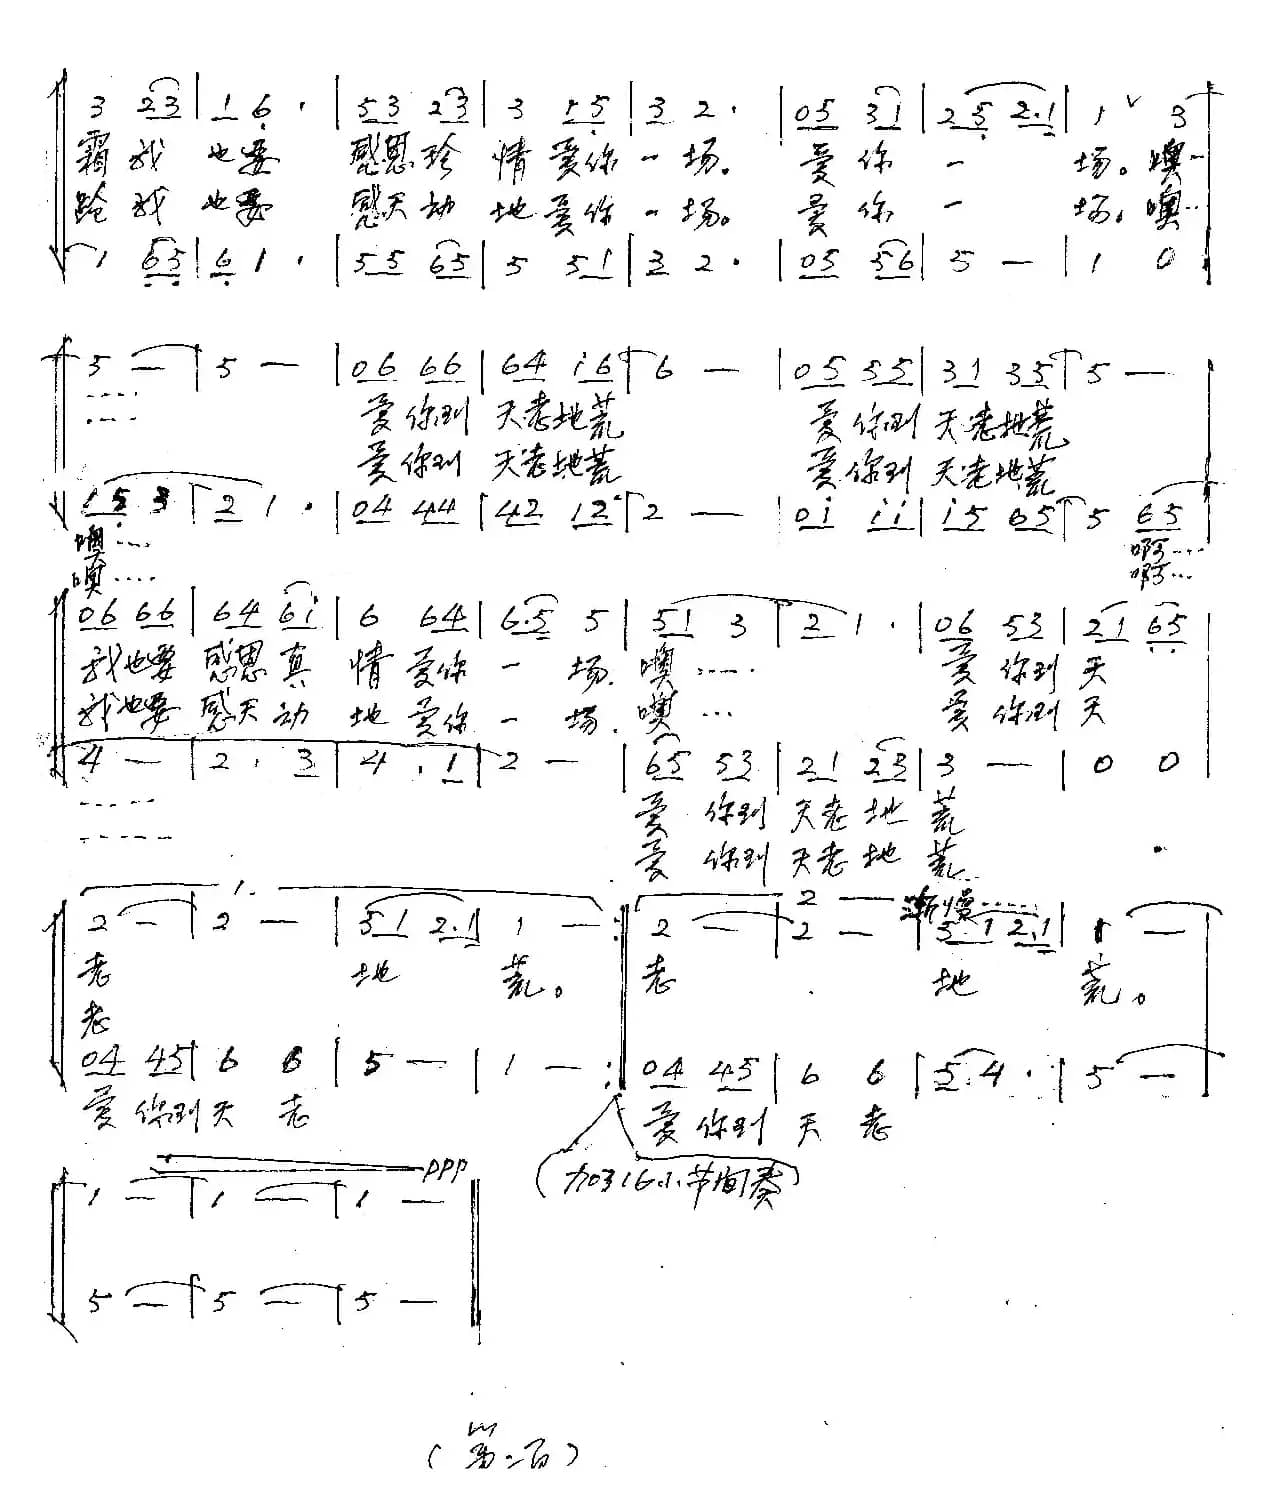 3 23 | 1 6 · | 53 23 | 3 15 | 3 2 · | 05 31 | 25 2·1 | 1 ∨ 3
霜我 也要 感恩珍 情爱你一场。 爱你一 场。噢…
跄我 也要 感天动 地爱你一场。 爱你一 场。噢…
1 65 | 6 1 · | 55 65 | 5 51 | 3 2 · | 05 56 | 5 — | 1 0
5 — | 5 — | 06 66 | 64 i6 | 6 — | 05 55 | 31 35 | 5 —
爱你到 天老地荒 爱你到 天老地荒
爱你到 天老地荒 爱你到 天老地荒
15 3 | 2 1 · | 04 44 | 42 12 | 2 — | 0i ii | i5 65 | 5 65
噢…… 啊……
噢…… 啊…
06 66 | 64 6i | 6 64 | 6·5 5 | 51 3 | 2 1 · | 06 53 | 21 65
我也要 感恩真 情爱你一 场. 噢…… 爱你到 天
我也要 感天动 地爱你一 场. 噢… 爱你到 天
4 — | 2 · 3 | 4 · 1 | 2 — | 65 53 | 21 23 | 3 — | 0 0
爱 你到 天老地 荒
爱 你到 天老地 荒
1. 2 — 渐慢……
2 — | 2 — | 51 2·1 | 1 — :‖ 2 — | 2 — | 51 2·1 | 1 —
老 地 荒。 老 地 荒。
老
04 45 | 6 6 | 5 — | 1 — :‖ 04 45 | 6 6 | 5·4 · | 5 —
爱你到天 老 爱你到 天 老
ppp
(加0316小节间奏)
1 — | 1 — | 1 —
5 — | 5 — | 5 —
(第二页)